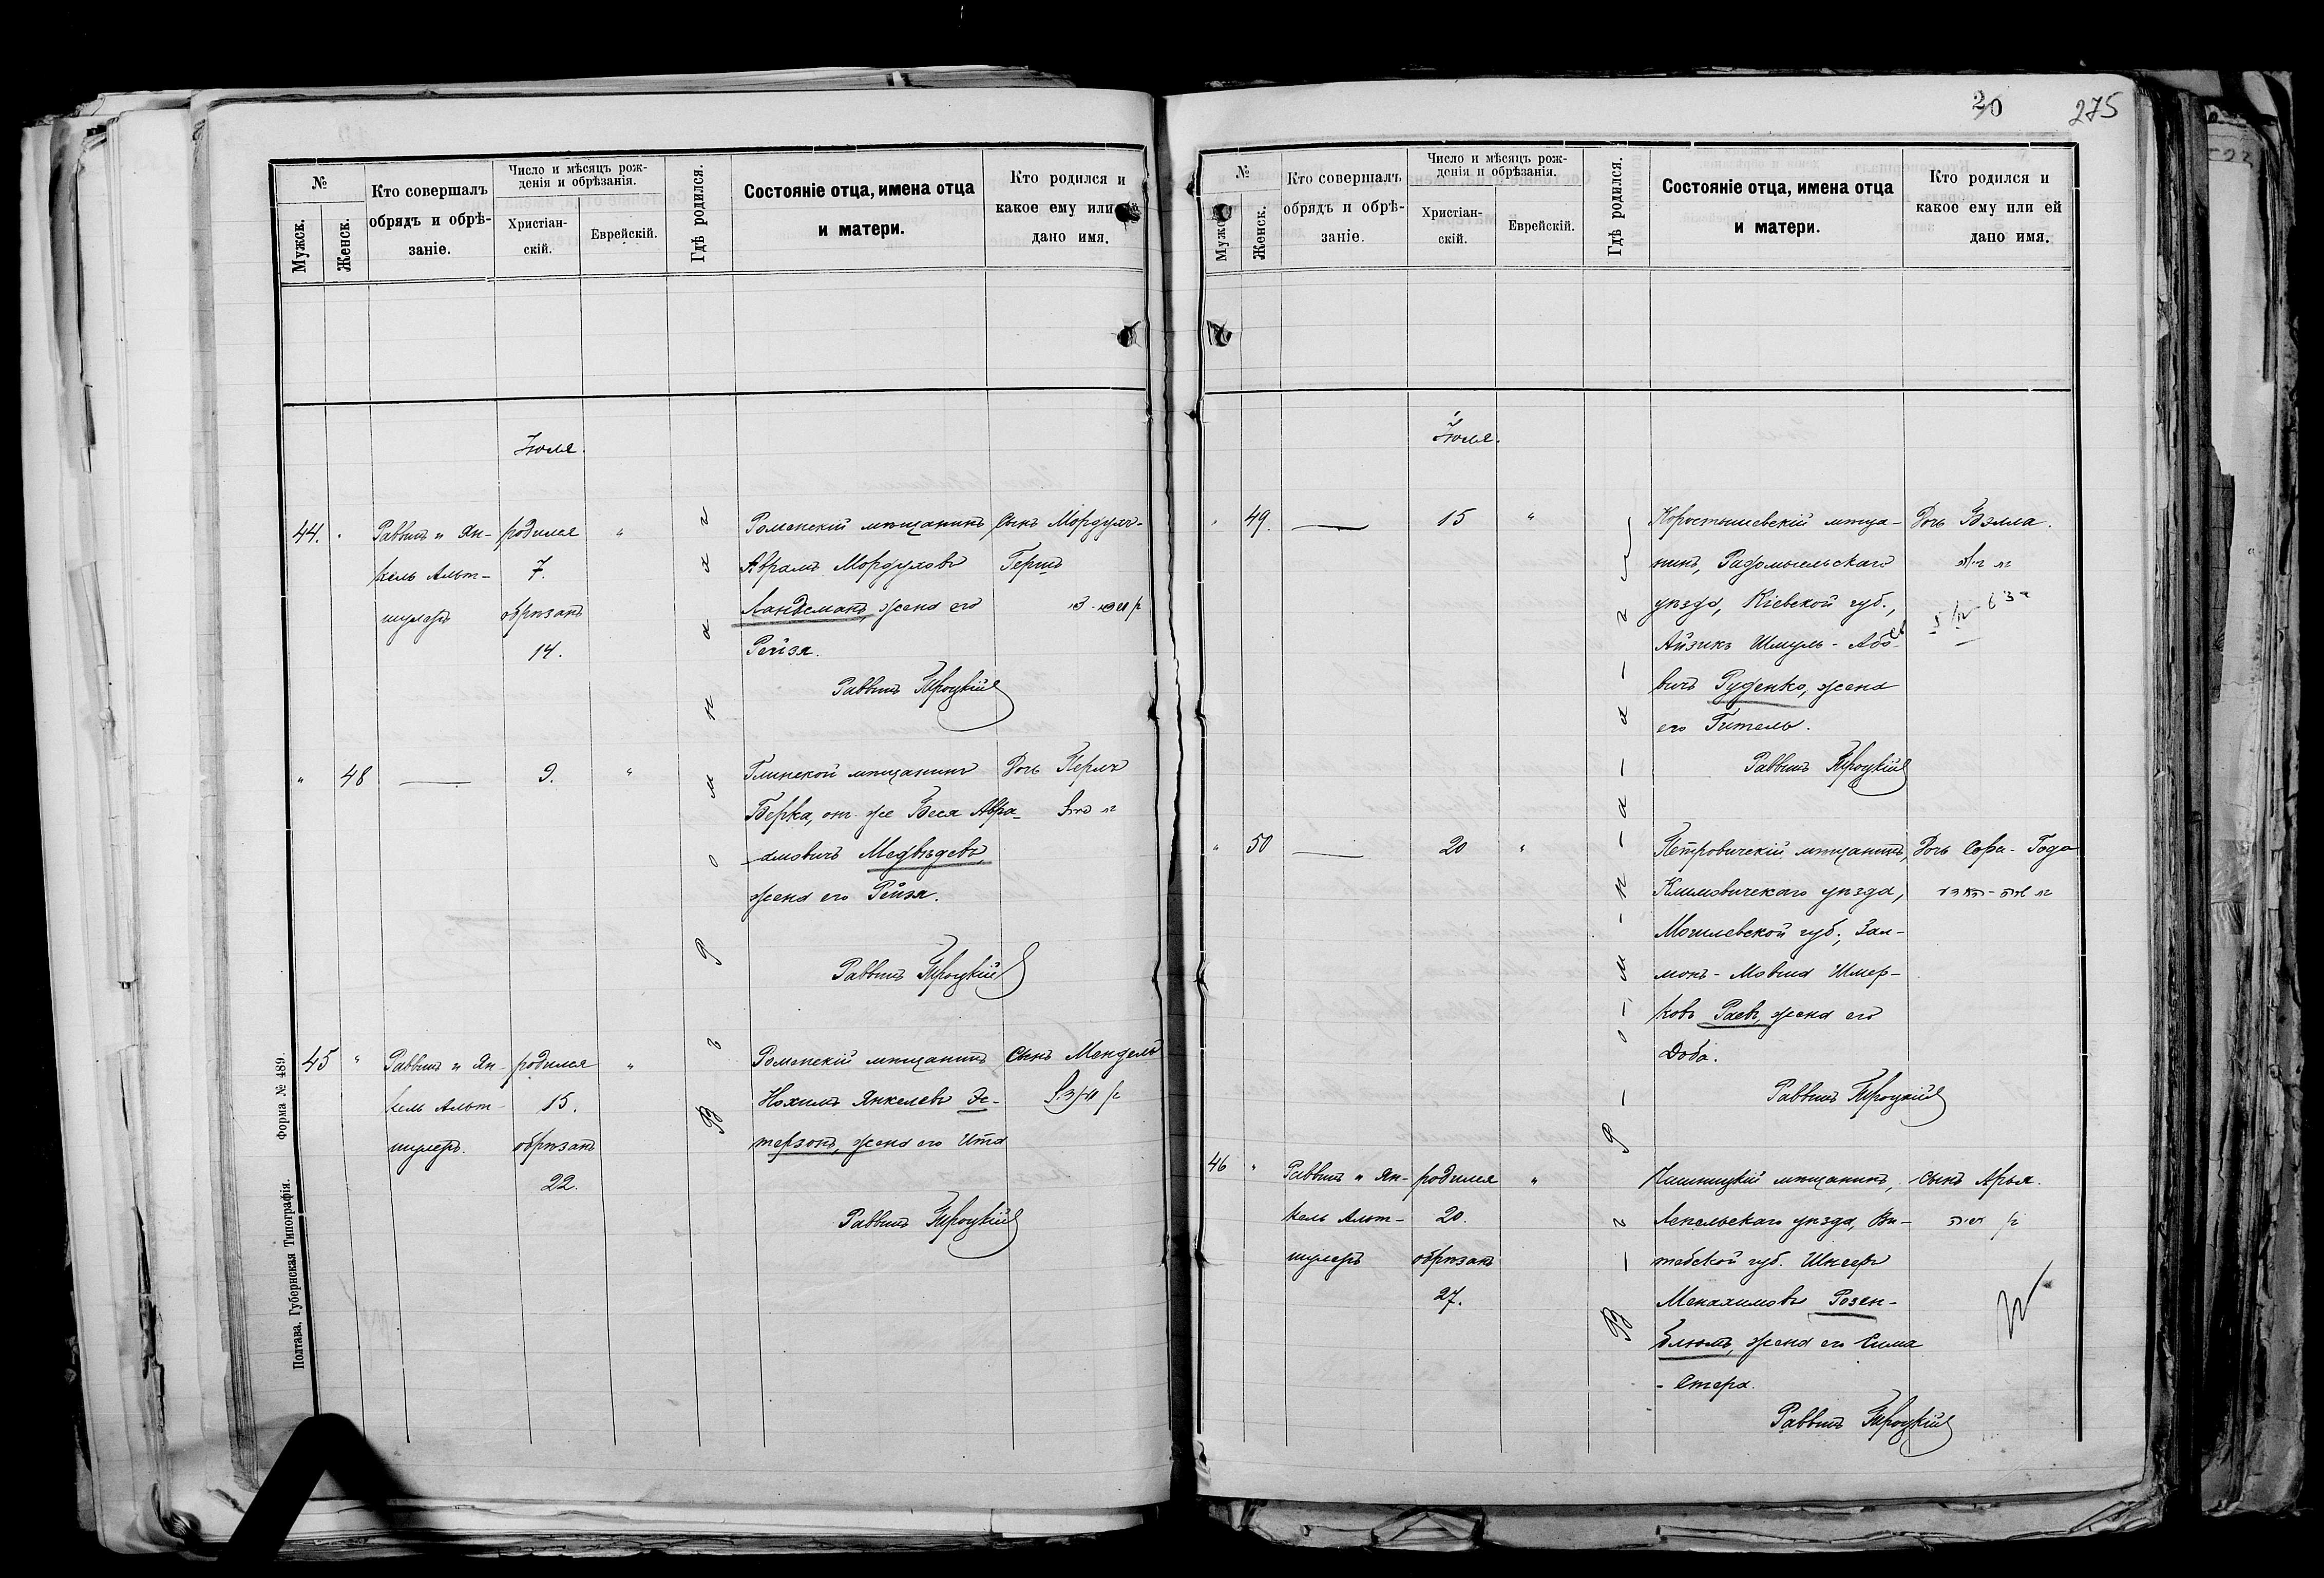 №
Мужск.
Женск.
Кто совершалъ
обрядъ и обрѣ-
заніе.
Число и мѣсяцъ рож-
денія и обрѣзанія.
Христіан-
скій.
Еврейскій.
Гдѣ родился.
Состояніе отца, имена отца
и матери.
Кто родился и
какое ему или
дано имя.
Іюля.
44. "
Раввинъ и Ян-
кель Альт-
шулеръ
родился
7.
обрѣзанъ
14.
"
Роменскій мѣщанинъ
Аврамъ Мордуховъ
Ландсманъ, жена его
Рейзя.
Раввинъ Троцкій
Сынъ Мордухъ-
Гершъ
" 48
—
9.
"
Глинской мѣщанинъ
Берка, он же Беся Авра-
амовичъ Медвѣдевъ,
жена его Рейзя.
Раввинъ Троцкій
Дочь Перля
45 "
Раввинъ и Ян-
кель Альт-
шулеръ.
родился
15.
обрѣзанъ
22.
"
Роменскій мѣщанинъ
Нохимъ Янкелевъ Эс-
терзонъ, жена его Ита
Раввинъ Троцкій
Сынъ Мендель
Въ Ромнахъ
Полтава, Губернская Типографія. Форма № 489.
20
275
№
Мужс
Женск.
Кто совершалъ
обрядъ и обрѣ-
заніе.
Число и мѣсяцъ рож-
денія и обрѣзанія.
Христіан-
скій.
Еврейскій.
Гдѣ родился.
Состояніе отца, имена отца
и матери.
Кто родился и
какое ему или ей
дано имя.
Іюля.
" 49.
—
15
"
Коростышевскій мѣща-
нинъ, Радомысльскаго
уѣзда, Кіевской губ.,
Айзикъ Шмуль-Або-
вичъ Руденко, жена
его Гитель.
Раввинъ Троцкій
Дочь Бэлла.
" 50
—
20
"
Петровичскій мѣщанинъ,
Климовичскаго уѣзда,
Могилевской губ., Зал-
монъ-Мовша Шмер-
ковъ Раевъ, жена его
Доба.
Раввинъ Троцкій
Дочь Сора-Года
46 "
Раввинъ и Ян-
кель Альт-
шулеръ
родился
20.
обрѣзанъ
27.
"
Чашницкій мѣщанинъ,
Лепельскаго уѣзда, Ви-
тебской губ.
Менахимовъ Розен-
блюмъ, жена его Сима
-Стера.
Раввинъ Троцкій
Сынъ Арья.
Въ Ромнахъ